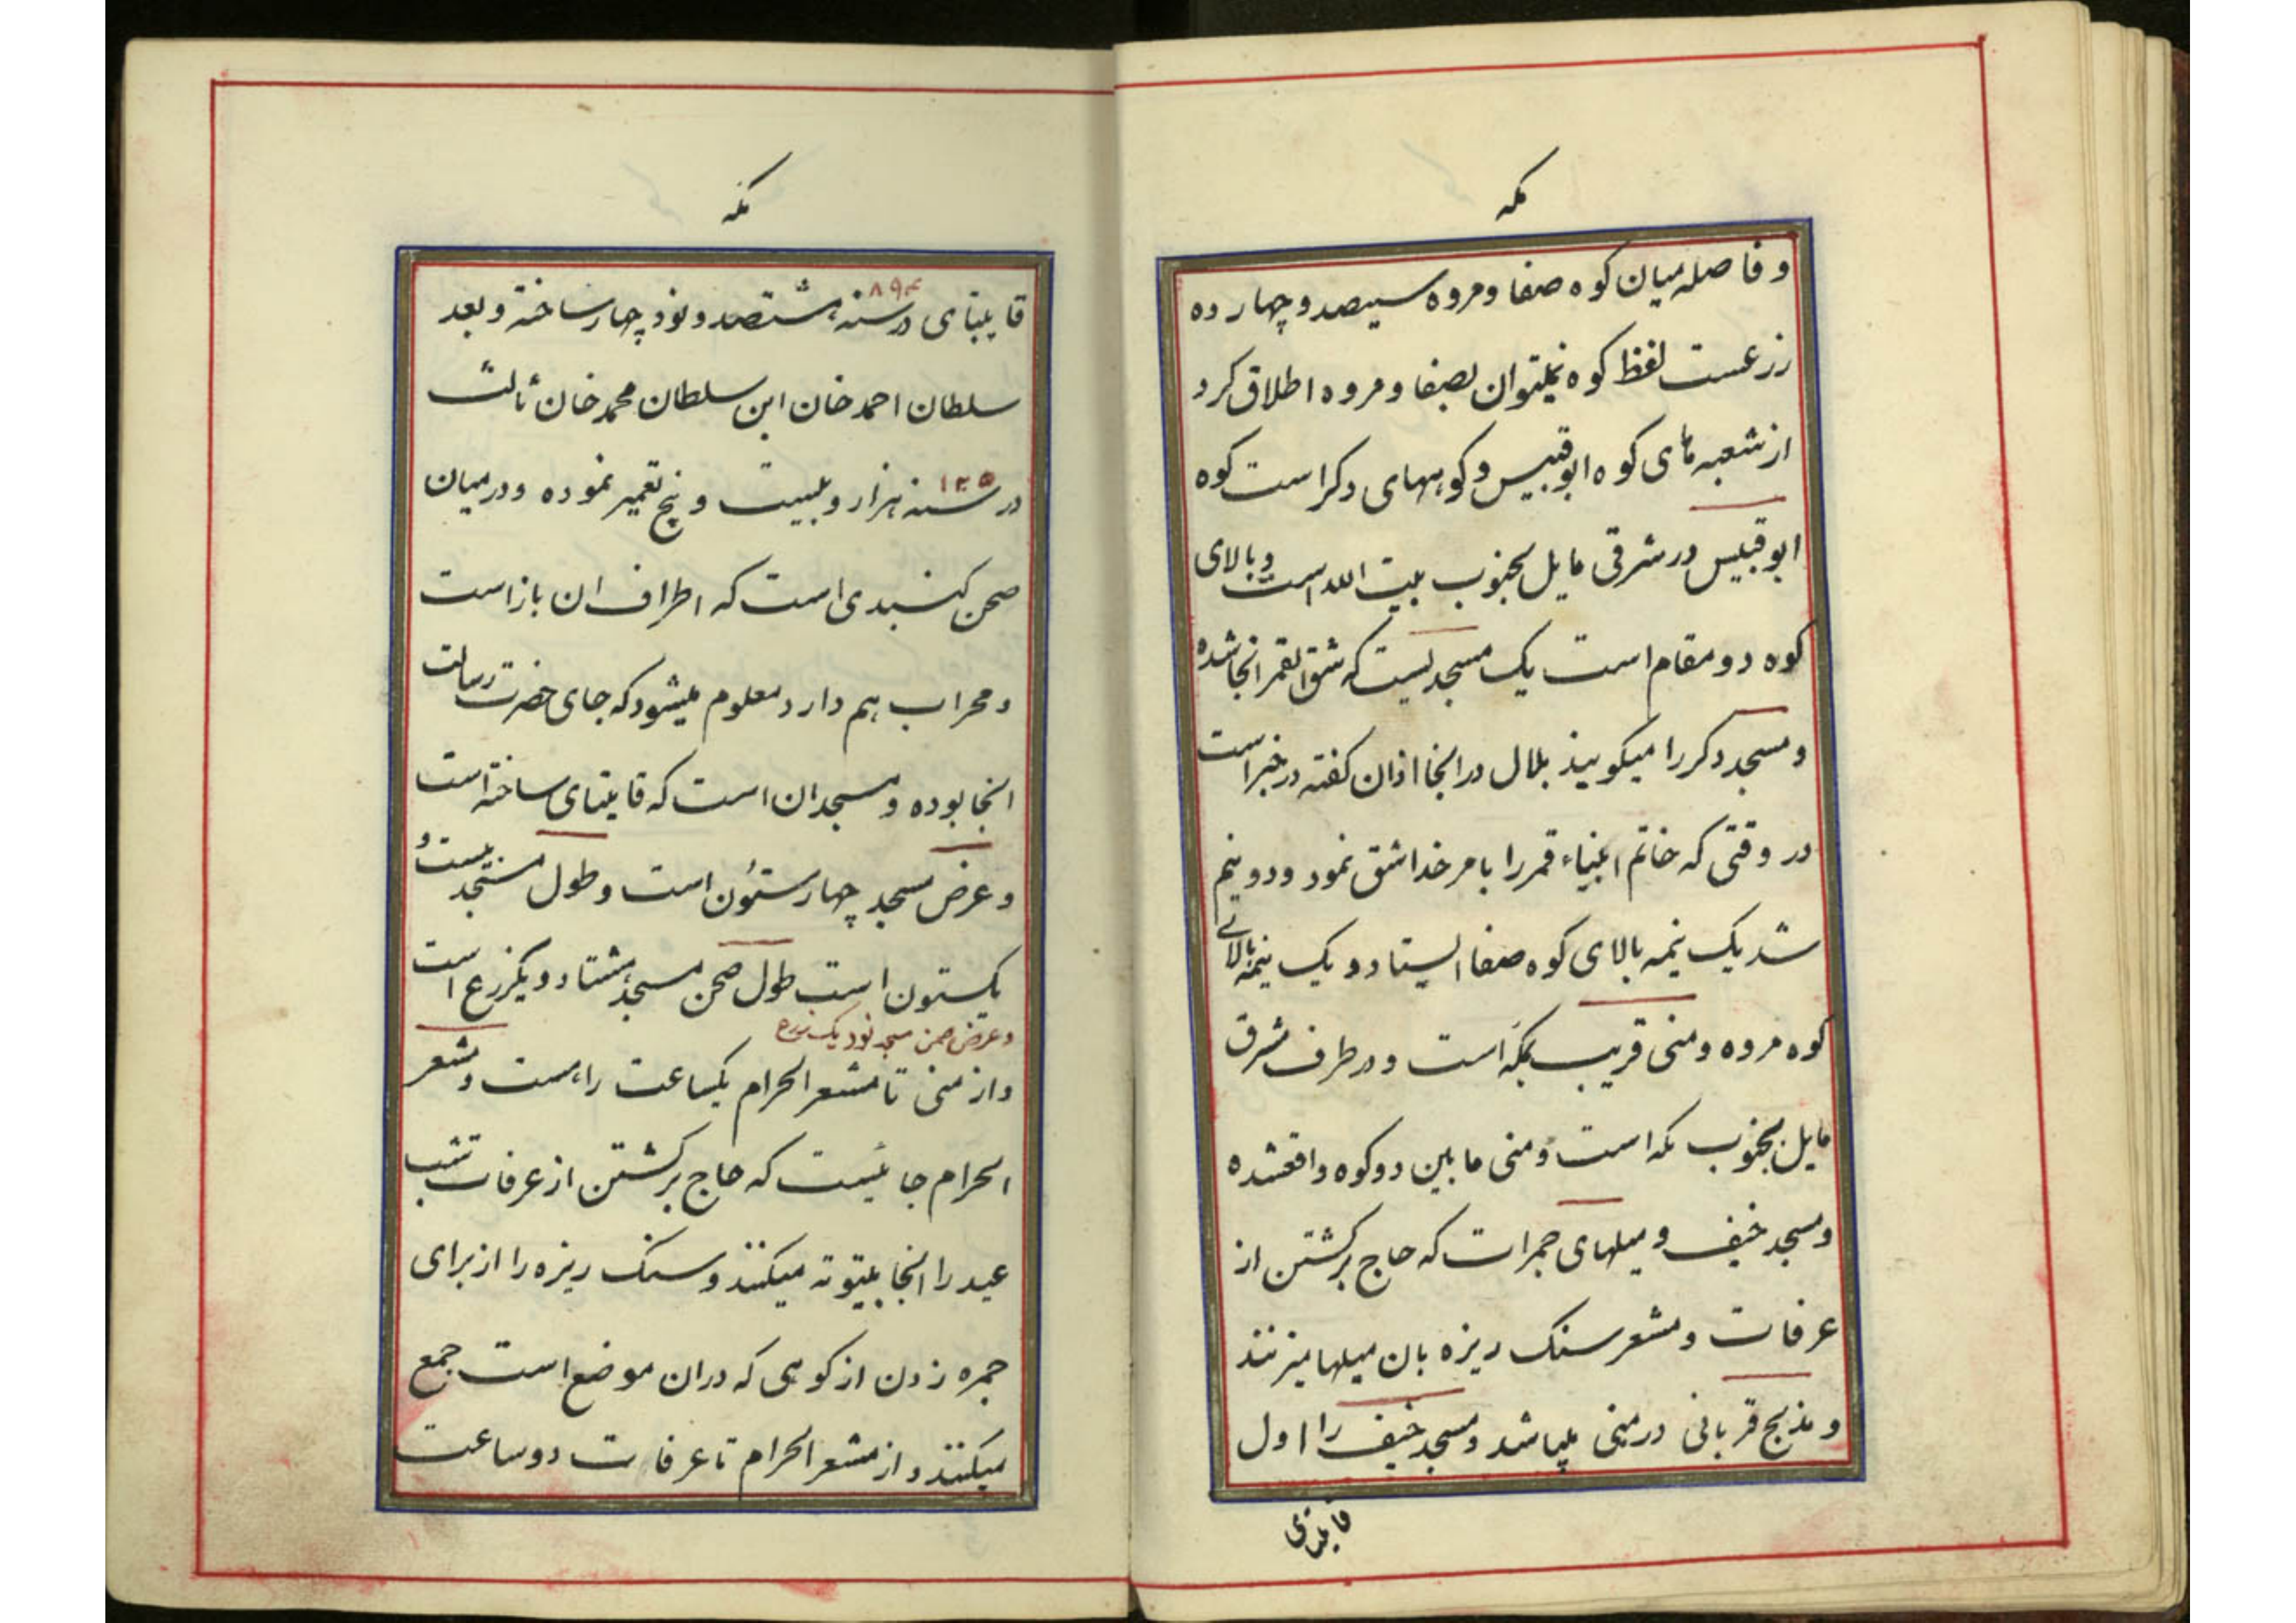 مکه
و فاصله میان کوه صفا و مروه سیصد و چهارده
زرعست لفظ کوه نمیتوان بصفا و مروه اطلاق کرد
از شعبه های کوه ابوقبیس و کوههای دکر است کوه
ابوقبیس در شرقی مایل بجنوب بیت الله است و بالای
کوه دو مقام است یک مسجدیست که شق القمر انجا شده
و مسجد دکر را میکویند بلال در انجا اذان کفته در خبر است
در وقتی که خاتم انبیاء قمر را بامر خدا شق نمود و دو نیم
شد یک نیمه بالای کوه صفا ایستاد و یک نیمه بالای
کوه مروه و منی قریب بمکه است و در طرف مشرق
مایل بجنوب مکه است و منی مابین دو کوه واقعشده
و مسجد خیف و میلهای جمرات که حاج برکشتن از
عرفات و مشعر سنک ریزه بان میلها میزنند
و مذبح قربانی در منی میباشد و مسجد خیف را اول
قایتبای
مکه
قایتبای در سنه هشتصد و نود چهار ساخته و بعد
۸۹۴
سلطان احمد خان ابن سلطان محمد خان ثالث
در سنه هزار و بیست و پنج تعمیر نموده و در میان
۱۰۲۵
صحن کنبدی است که اطراف ان باز است
و محراب هم دارد معلوم میشود که جای حضرت رسالت
انجا بوده و مسجد ان است که قایتبای ساخته است
و عرض مسجد چهار ستون است و طول مسجد بیست و
یکستون است طول صحن مسجد هشتاد و یکزرع است
و عرض صحن مسجد نود یک زرع
و از منی تا مشعر الحرام یکساعت راهست و مشعر
الحرام جائیست که حاج برکشتن از عرفات شب
عید را انجا بیتوته میکنند و سنک ریزه را از برای
جمره زدن از کوهی که در ان موضع است جمع
میکنند و از مشعر الحرام تا عرفات دو ساعت